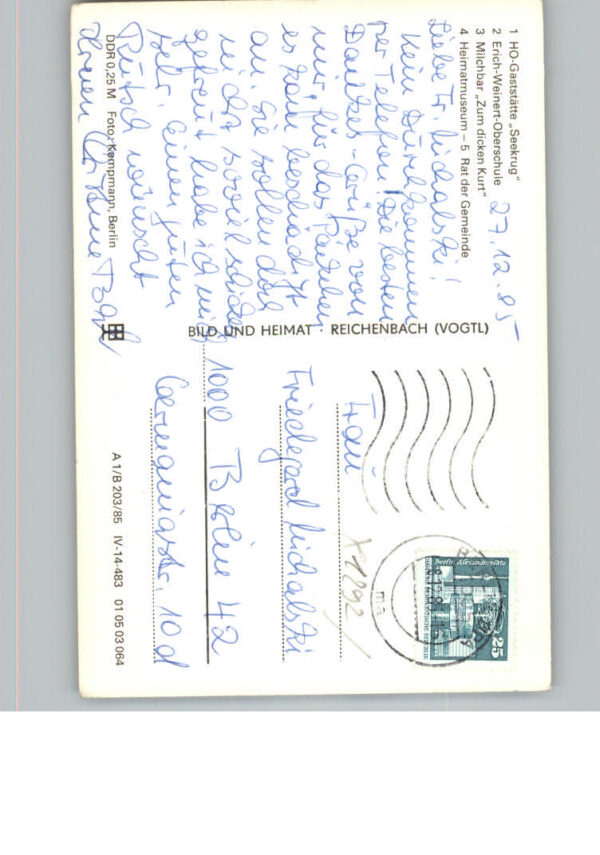 1 HO-Gaststätte „Seekrug"
2 Erich-Weinert-Oberschule
3 Milchbar „Zum dicken Kurt"
4 Heimatmuseum – 5 Rat der Gemeinde
27.12.85
Liebe Fr. Michalski!
Kein Durchkommen
per Telefon! Die besten
Dankes-Grüße von
mir, für das Päckchen
es kam beschädigt
an. Sie sollen doch
nicht soviel schicken
gefreut habe ich mich
sehr. Einen guten
Rutsch wünscht
Ihnen
DDR 0,25 M Foto: Kempmann, Berlin
BILD UND HEIMAT · REICHENBACH (VOGTL)
A 1/B 203/85 IV-14-483 01 05 03 064
Berlin, Alexanderplatz
25
Frau
Friedegard Michalski
1000 Berlin 42
Germaniastr. 10d